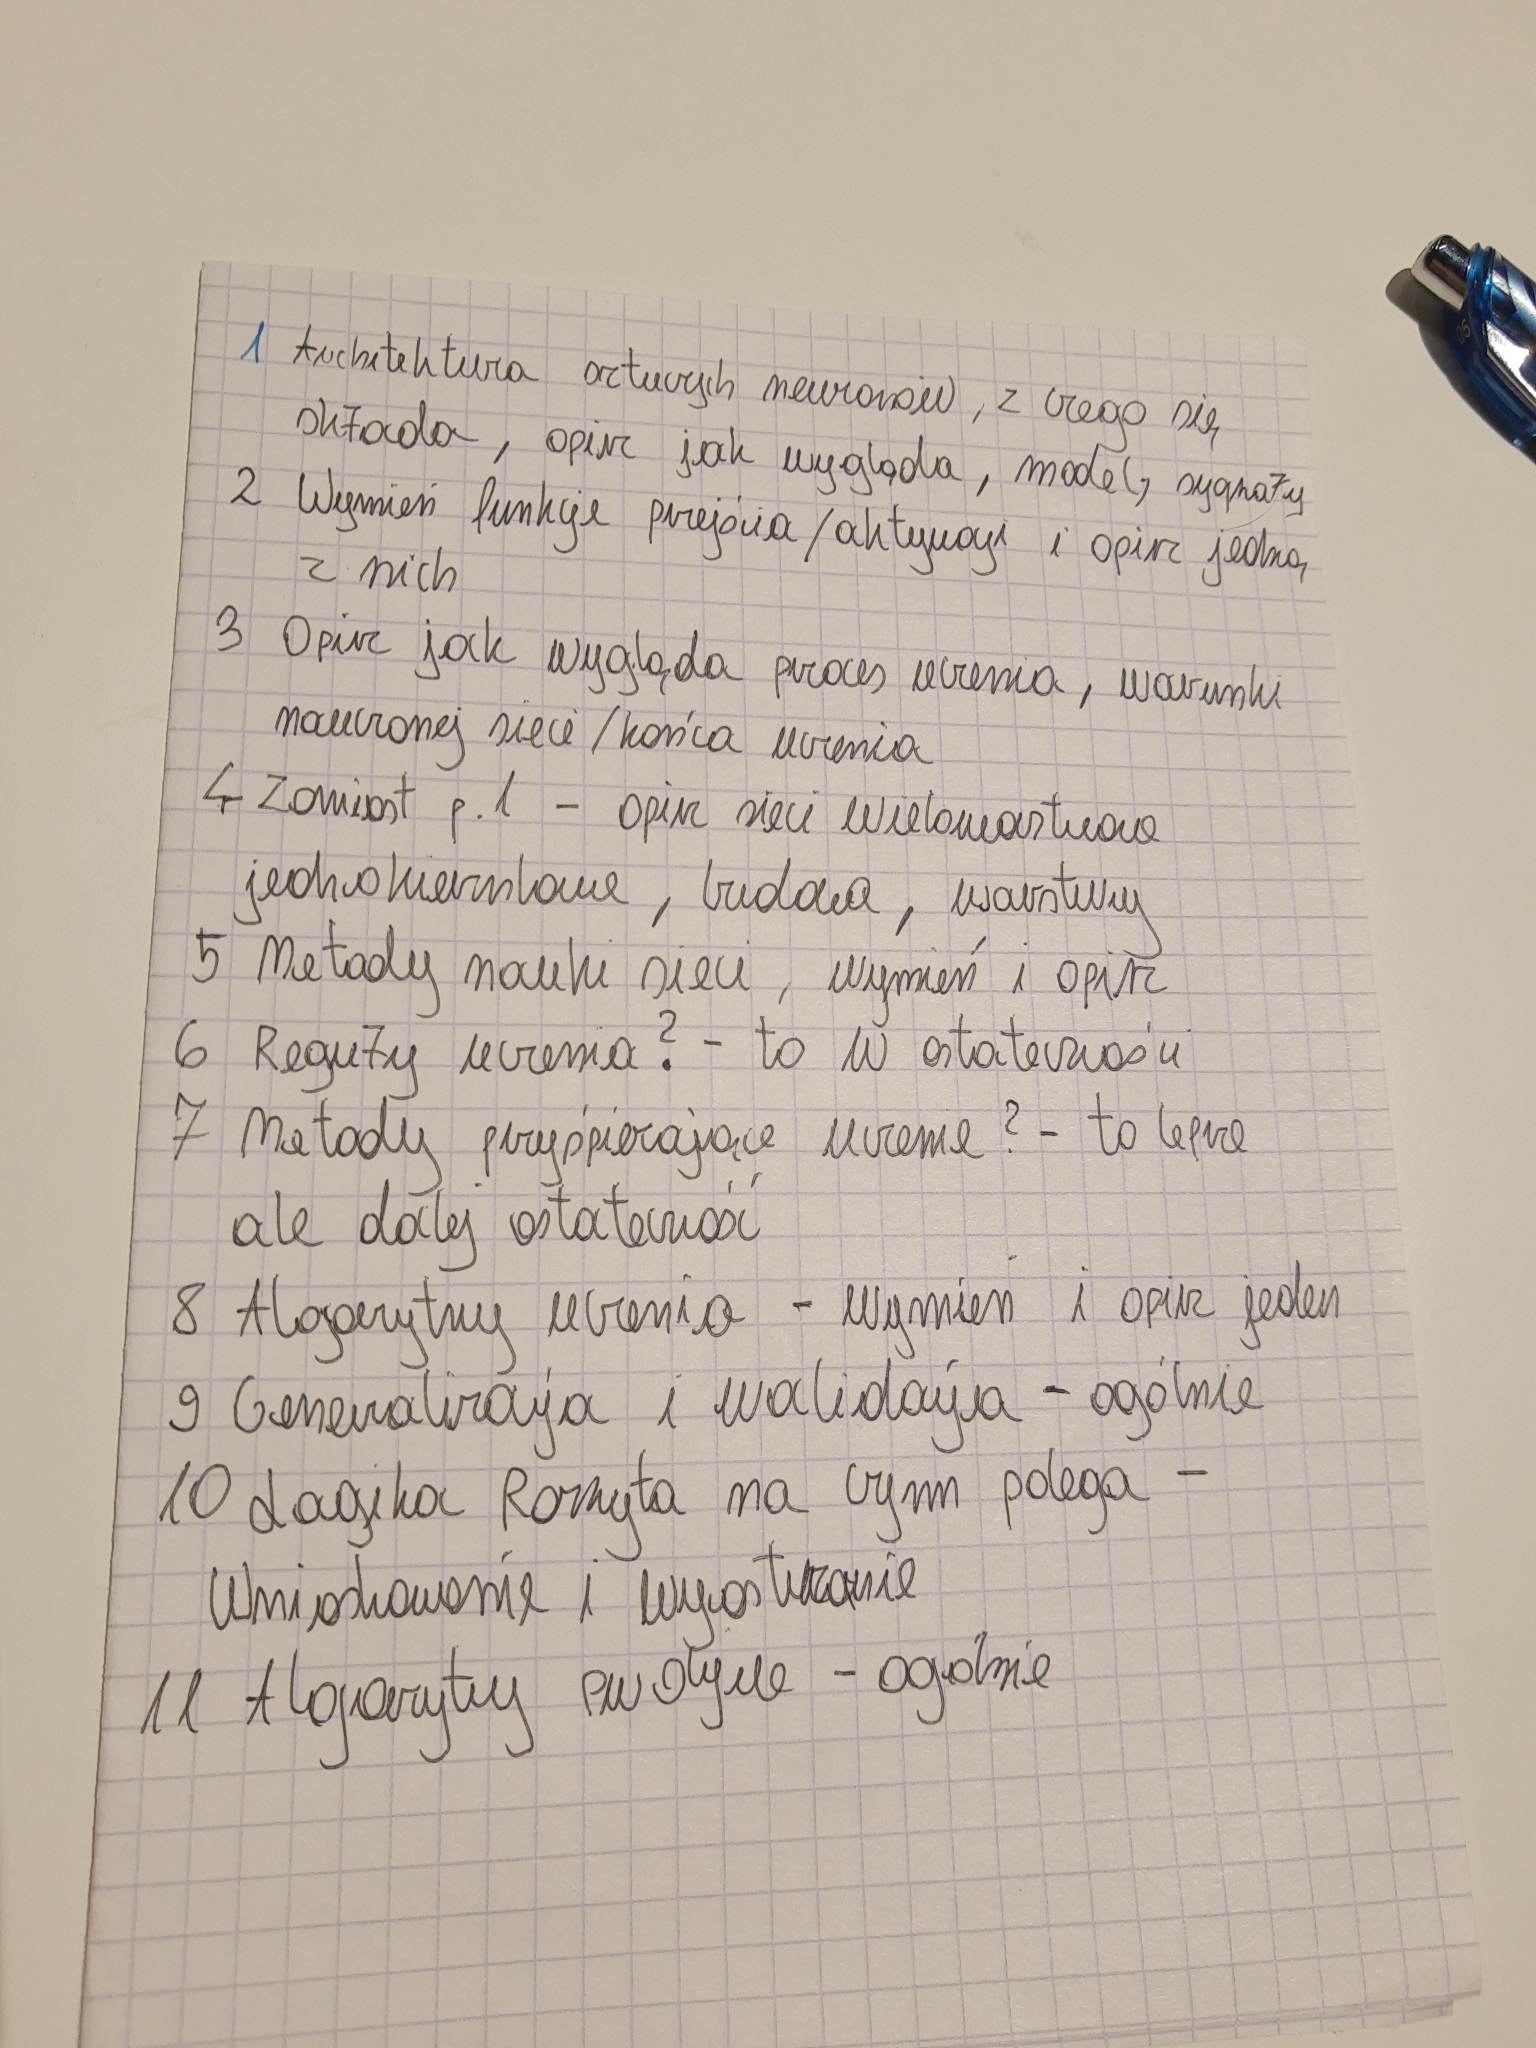 1 Architektura sztucznych neuronów, z czego się
składa, opisz jak wygląda, model, sygnały
2 Wymień funkcje przejścia/aktywacji i opisz jedną
z nich
3 Opisz jak wygląda proces uczenia, warunki
nauczonej sieci/końca uczenia
4 Zamiast p. 1 - opisz sieci wielowarstwowe
jednokierunkowe, budowa, warstwy
5 Metody nauki sieci, wymień i opisz
6 Reguły uczenia? - to w ostateczności
7 Metody przyśpieszające uczenie? - to lepsze
ale dalej ostateczność
8 Algorytmy uczenia - wymień i opisz jeden
9 Generalizacja i walidacja - ogólnie
10 Logika Rozmyta na czym polega -
Wnioskowanie i wyostrzanie
11 Algorytmy ewolucyjne - ogólnie